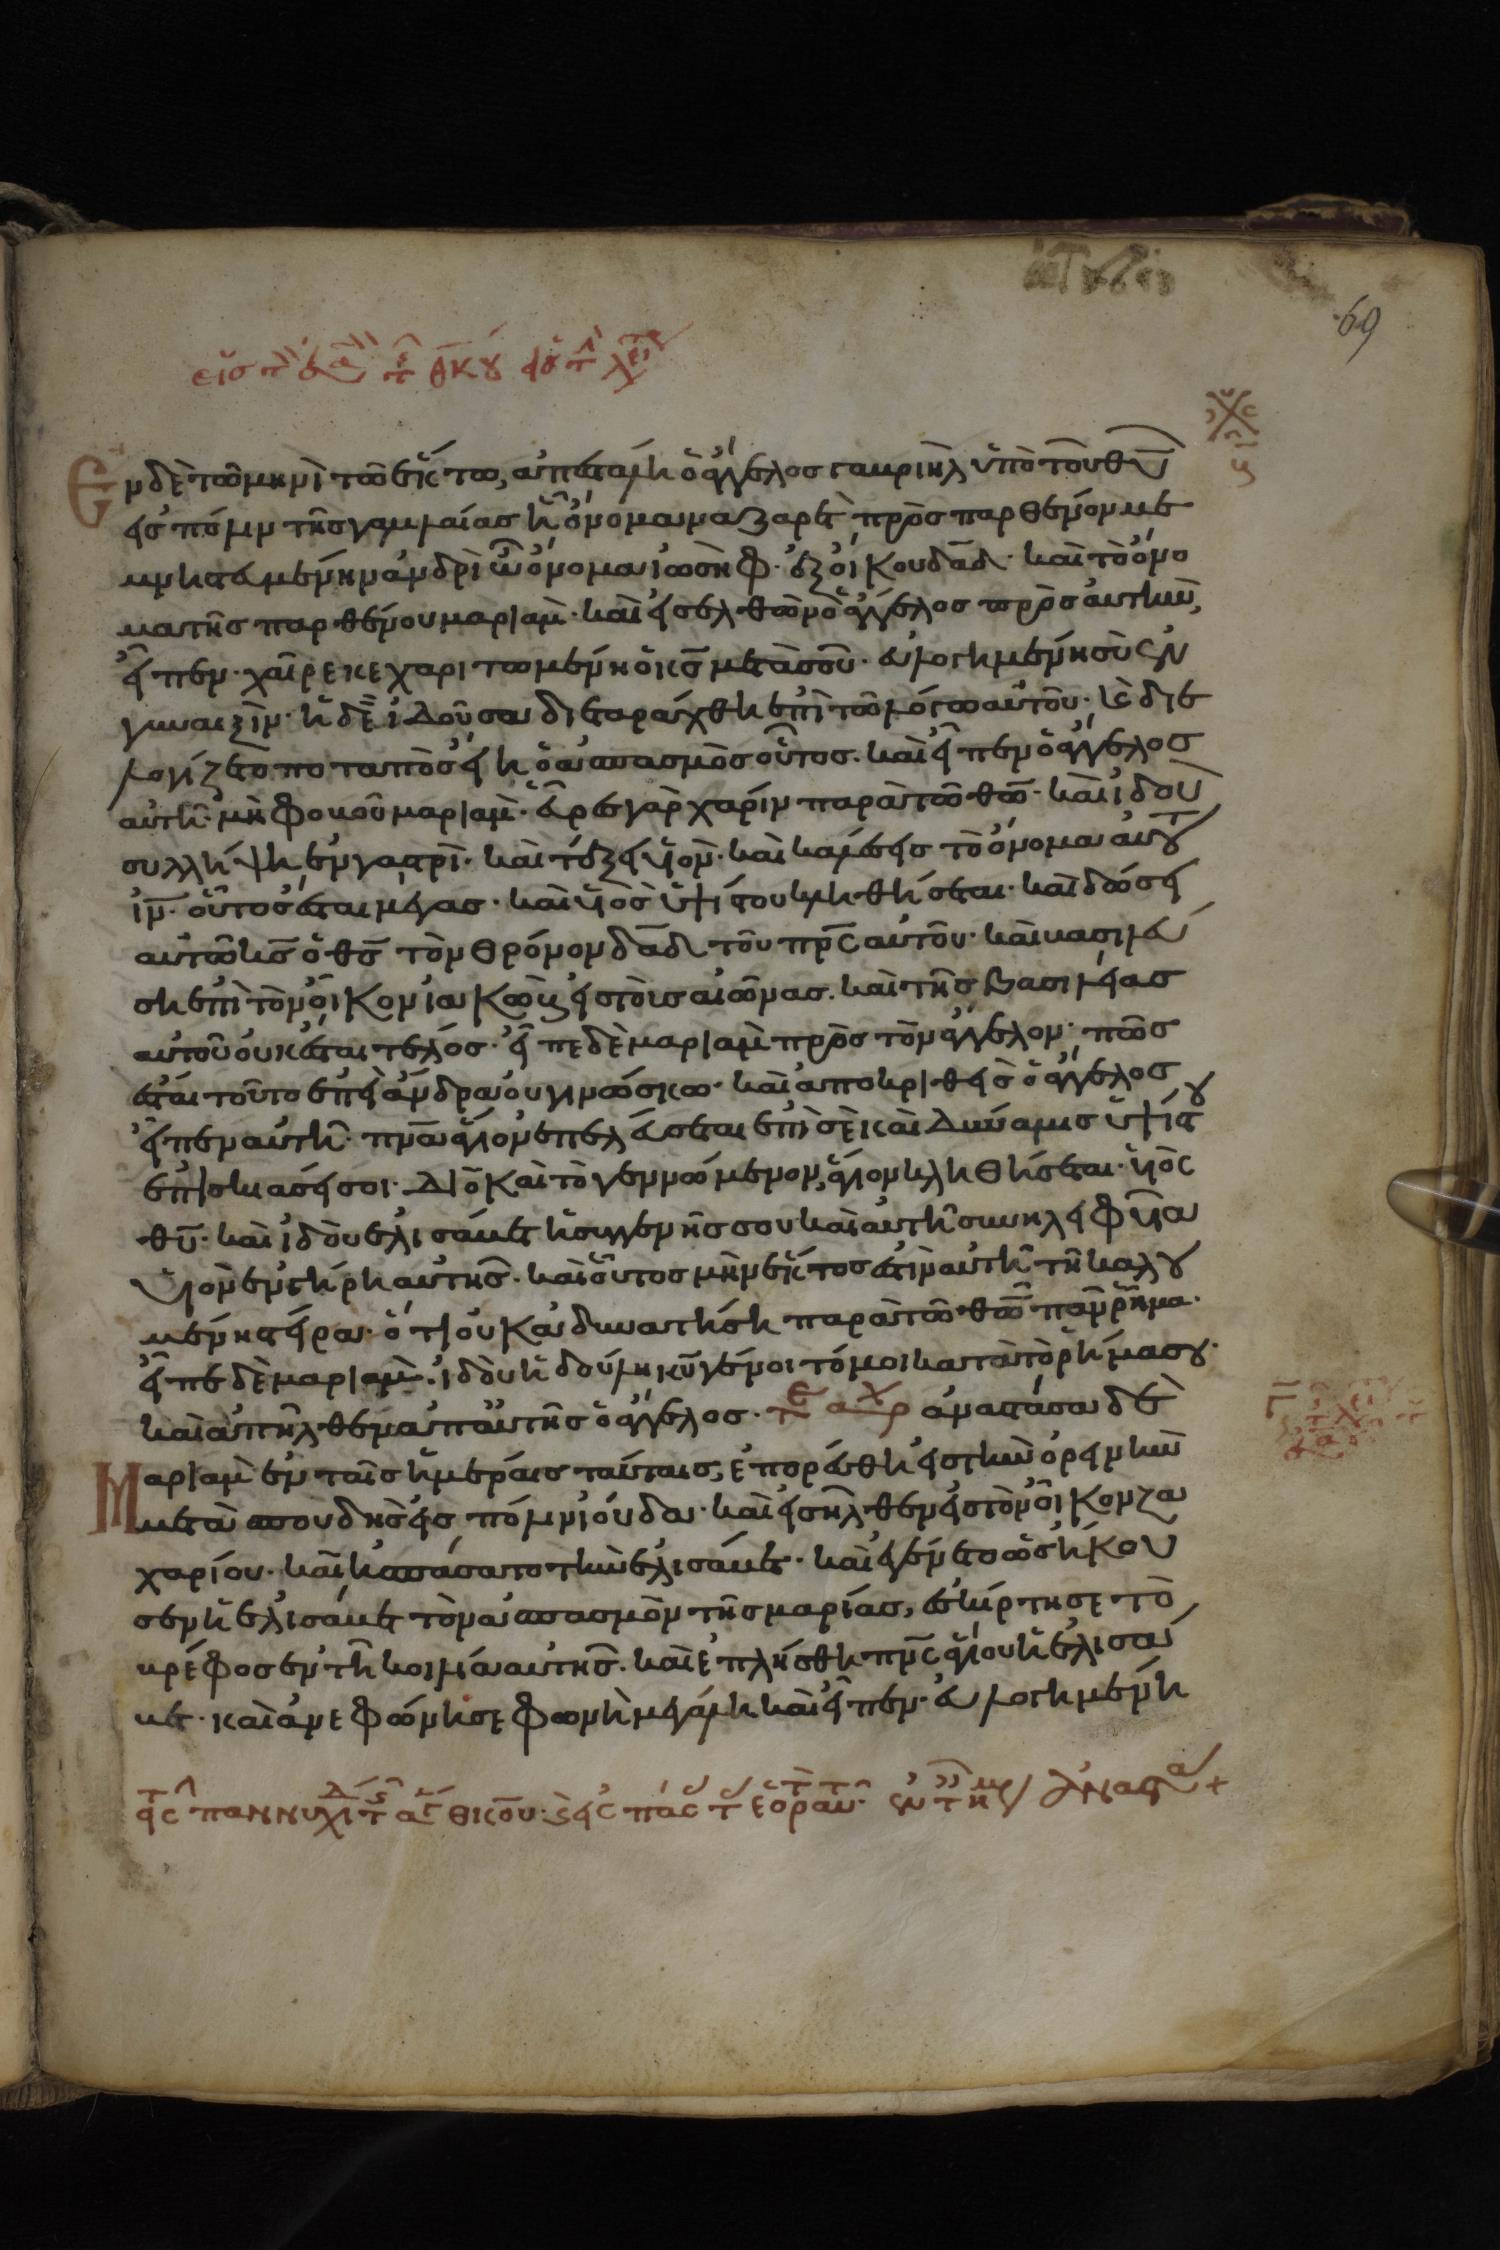 69
Ἐν δὲ τῶ μηνὶ τῶ ἕκτω, ἀπεστάλη ὁ ἄγγελος γαβριὴλ ὑπὸ τοῦ θῦ
εἰς πόλιν τῆς γαλιλαίας ἧ ὄνομα ναζαρὲτ πρὸς παρθένον με
μνηστευμένην ἀνδρὶ ὧ ὄνομα ἰωσὴφ· ἐξ οἴκου δᾱδ· καὶ τὸ ὄνο
μα τῆς παρθένου μαριάμ· καὶ εἰσελθὼν ὁ ἄγγελος πρὸς αὐτὴν,
εἶπεν· χαῖρε κεχαριτωμένη ὁ κς̄ μετὰ σοῦ· εὐλογημένη σὺ ἐν
γυναιξίν· ἡ δὲ ἰδοῦσα διεταράχθη ἐπὶ τῶ λόγω αὐτοῦ· καὶ διε
λογίζετο ποταπὸς εἴη ὁ ἀσπασμὸς οὗτος. καὶ εἶπεν ὁ ἄγγελος
αὐτῆ· μὴ φοβοῦ μαριάμ· εὗρες γὰρ χάριν παρὰ τῶ θῶ· καὶ ἰδοὺ
συλλήψη ἐν γαστρὶ· καὶ τέξει υἱόν· καὶ καλέσεις τὸ ὄνομα αὐτοῦ
ιν̄· οὗτος ἔσται μέγας· καὶ υἱὸς ὑψίστου κληθήσεται· καὶ δώσει
αὐτῶ κς̄ ὁ θς̄ τὸν θρόνον δᾱδ τοῦ πρς̄ αὐτοῦ· καὶ βασιλεύ
ση ἐπὶ τὸν οἶκον ἰακὼβ εἰς τοὺς αἰῶνας. καὶ τῆς βασιλείας
αὐτοῦ οὐκ ἔσται τέλος· εἶπε δὲ μαριὰμ πρὸς τὸν ἄγγελον· πῶς
ἔσται τοῦτο ἐπεὶ ἄνδρα οὐ γινώσκω· καὶ ἀποκριθεὶς ὁ ἄγγελος
εἶπεν αὐτῆ· πνᾱ ἅγιον ἐπελεύσεται ἐπὶ σὲ καὶ δύναμις ὑψίστου
ἐπισκιάσει σοι· διὸ καὶ τὸ γεννώμενον ἅγιον κληθήσεται· υἱὸς
θῡ· καὶ ἰδοὺ ἐλισάβετ ἡ συγγενής σου καὶ αὐτὴ συνειληφυῖα
υἱὸν ἐν γήρη αὐτῆς· καὶ οὗτος μὴν ἕκτος ἐστὶν αὐτῆ τῆ καλου
μένη στείρα· ὅτι οὐκ ἀδυνατήση παρὰ τῶ θῶ πᾶν ῥῆμα·
εἶπε δὲ μαριάμ· ἰδοὺ ἡ δούλη κῡ γένοιτό μοι κατὰ τὸ ῥῆμά σου·
καὶ ἀπῆλθεν ἀπ' αὐτῆς ὁ ἄγγελος· ἀναστᾶσα δὲ
Μαριὰμ ἐν ταῖς ἡμέραις ταύταις, ἐπορεύθη εἰς τὴν ὀρεινὴν
μετὰ σπουδῆς εἰς πόλιν ἰούδα· καὶ εἰσῆλθεν εἰς τὸν οἶκον ζα
χαρίου· καὶ ἠσπάσατο τὴν ἐλισάβετ· καὶ ἐγένετο ὡς ἤκου
σεν ἡ ἐλισάβετ τὸν ἀσπασμὸν τῆς μαρίας, ἐσκίρτησε τὸ
βρέφος ἐν τῆ κοιλία αὐτῆς. καὶ ἐπλήσθη πνς̄ ἁγίου ἡ ἐλισά
βετ· καὶ ἀνεφώνησε φωνῆ μεγάλη καὶ εἶπεν· εὐλογημένη